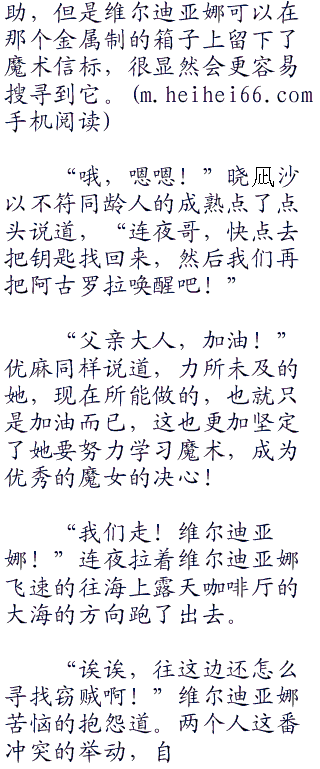 助，但是维尔迪亚娜可以在
那个金属制的箱子上留下了
魔术信标，很显然会更容易
搜寻到它。(m.heihei66.com
手机阅读)
“哦，嗯嗯！”晓凪沙
以不符同龄人的成熟点了点
头说道，“连夜哥，快点去
把钥匙找回来，然后我们再
把阿古罗拉唤醒吧！”
“父亲大人，加油！”
优麻同样说道，力所未及的
她，现在所能做的，也就只
是加油而已，这也更加坚定
了她要努力学习魔术，成为
优秀的魔女的决心！
“我们走！维尔迪亚
娜！”连夜拉着维尔迪亚娜
飞速的往海上露天咖啡厅的
大海的方向跑了出去。
“诶诶，往这边还怎么
寻找窃贼啊！”维尔迪亚娜
苦恼的抱怨道。两个人这番
冲突的举动，自